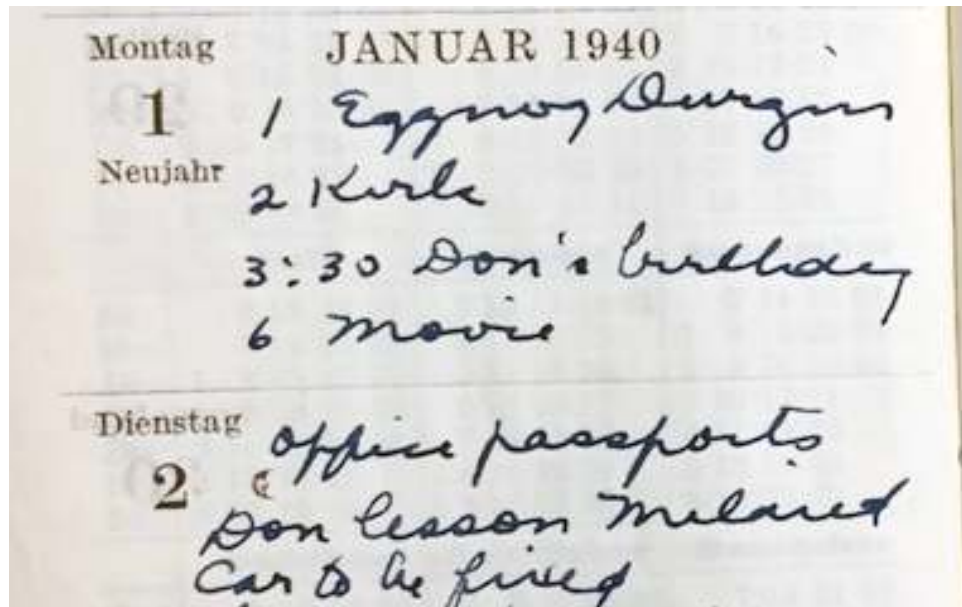 Montag JANUAR 1940
1 1 Eggnog Durgin
Neujahr
2 Kirk
3:30 Don's birthday
6 Movie
Dienstag office passports
2
Don lesson
Car to be fixed